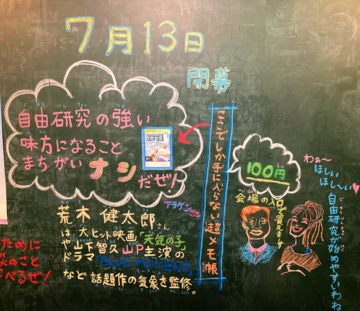 7月13日
開幕
自由研究の強い
味方になること
まちがいナシ
だぜ!
ここでしか手に入らない超メモ帳
100円
会場の入口で買えます
わぁ〜
ほしい
ほし〜い♥
自由研究が始めやすいわね
アラケン
荒木健太郎さん
は、大ヒット映画「天気の子」
や山下智久 山P主演の
ドラマ
など話題作の気象を監修。
ために
のこと
べるぜ!